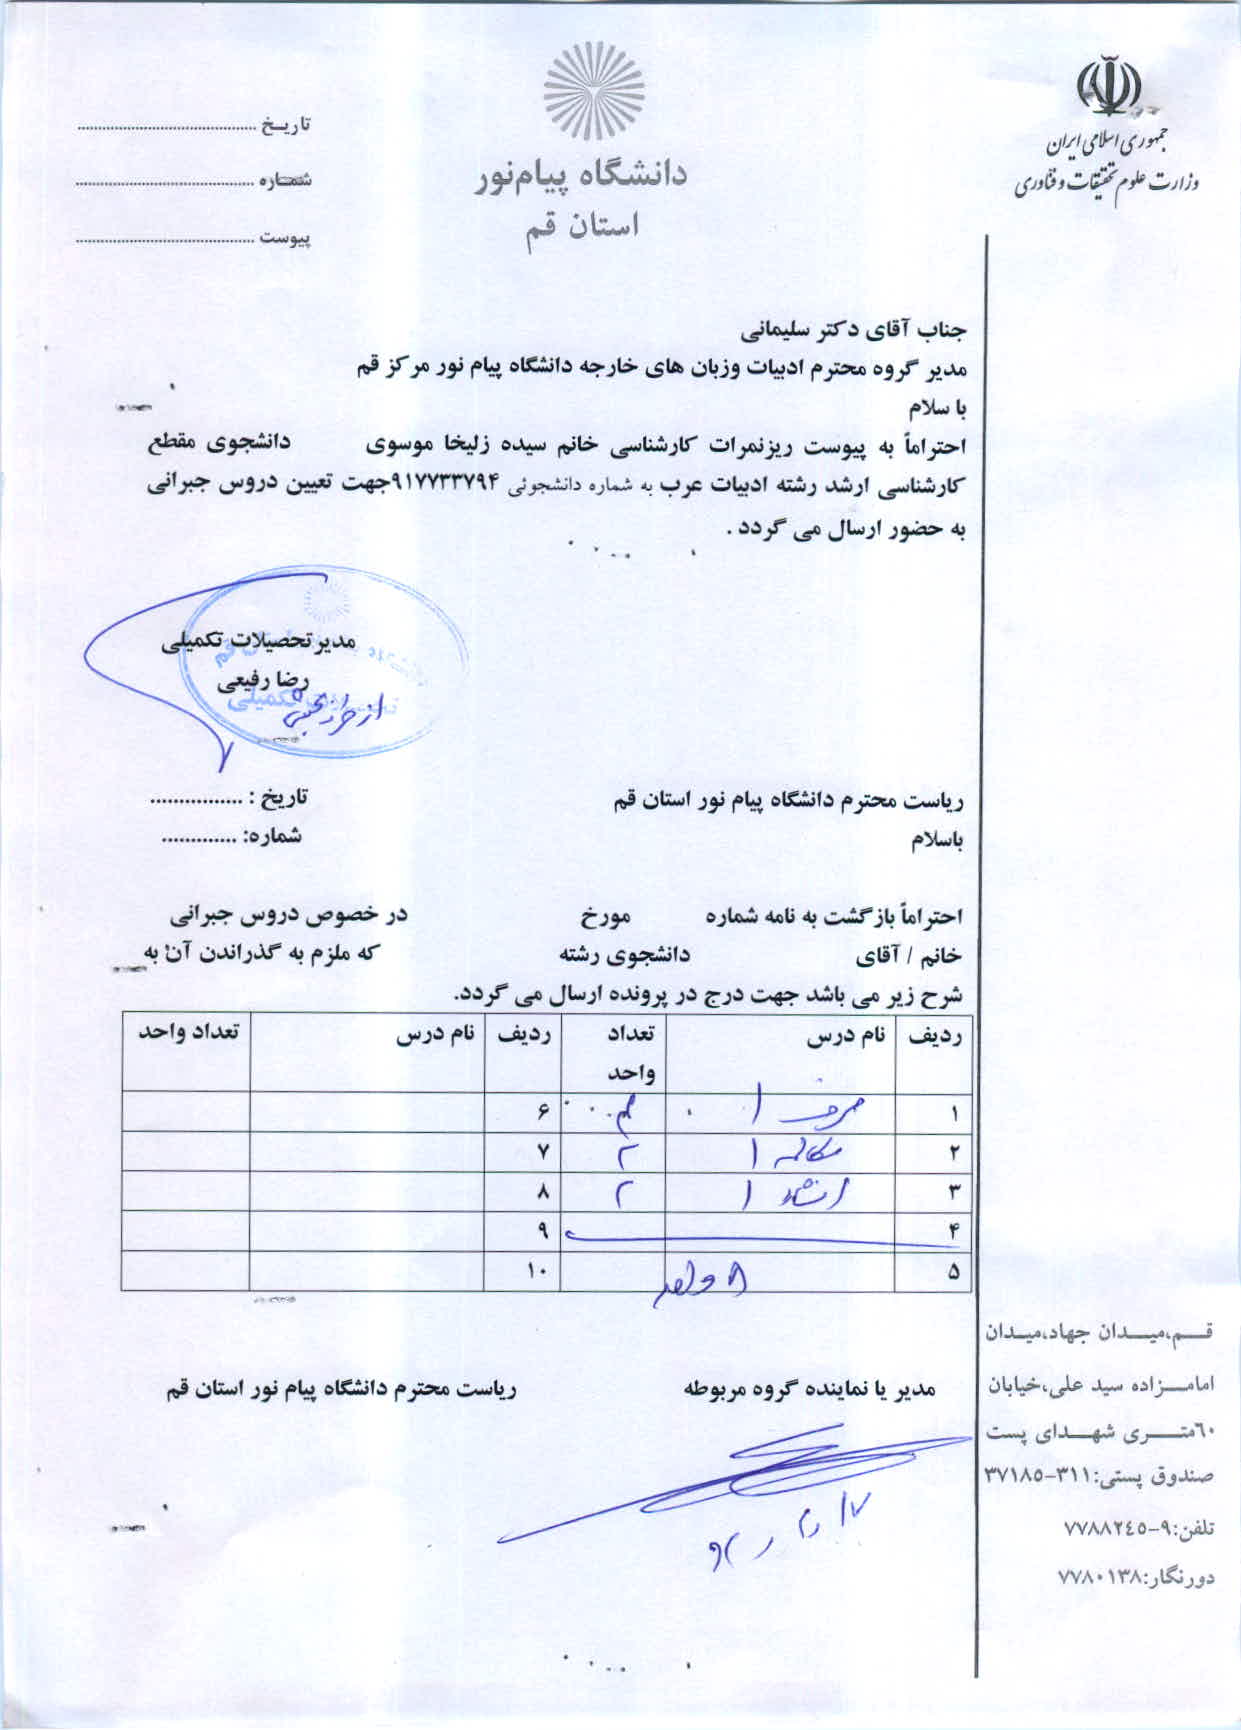 جمهوری اسلامی ایران
وزارت علوم تحقیقات و فناوری
دانشگاه پیام‌نور
استان قم
تاریخ ........................
شماره ........................
پیوست ........................
جناب آقای دکتر سلیمانی
مدیر گروه محترم ادبیات وزبان های خارجه دانشگاه پیام نور مرکز قم
با سلام
احتراماً به پیوست ریزنمرات کارشناسی خانم سیده زلیخا موسوی دانشجوی مقطع
کارشناسی ارشد رشته ادبیات عرب به شماره دانشجوئی ۹۱۷۷۳۳۷۹۴جهت تعیین دروس جبرانی
به حضور ارسال می گردد .
مدیر تحصیلات تکمیلی
رضا رفیعی
ریاست محترم دانشگاه پیام نور استان قم
تاریخ : ................
باسلام
شماره: .............
احتراماً بازگشت به نامه شماره مورخ در خصوص دروس جبرانی
خانم / آقای دانشجوی رشته که ملزم به گذراندن آن به
شرح زیر می باشد جهت درج در پرونده ارسال می گردد.
ردیف نام درس تعداد واحد ردیف نام درس تعداد واحد
۱ صرف ۱ ۴ ۶
۲ مکالمه ۱ ۲ ۷
۳ انشاء ۱ ۲ ۸
۴ ۹
۵ ۸ واحد ۱۰
مدیر یا نماینده گروه مربوطه ریاست محترم دانشگاه پیام نور استان قم
قـم،میـدان جهاد،میدان
امامـزاده سید علی،خیابان
۶۰متـری شهـدای پست
صندوق پستی:۳۱۱-۳۷۱۸۵
تلفن:۹-۷۷۸۸۲۴۵
دورنگار:۷۷۸۰۱۳۸